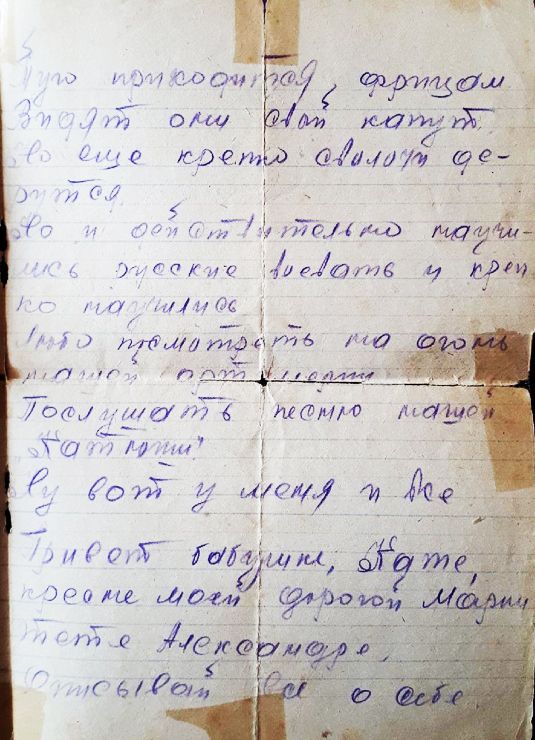 Туго приходится фрицам
Видят они свой капут.
Но еще крепко сволочи де-
рутся.
Но и действительно научи-
лись русские воевать и креп
ко научились
Любо посмотреть на огонь
нашей артиллерии
Послушать песню нашей
„Катюши"
Ну вот у меня и все
Привет бабушке, Наде,
крестне моей дорогой Марии
тете Александре,
Описывай все о себе